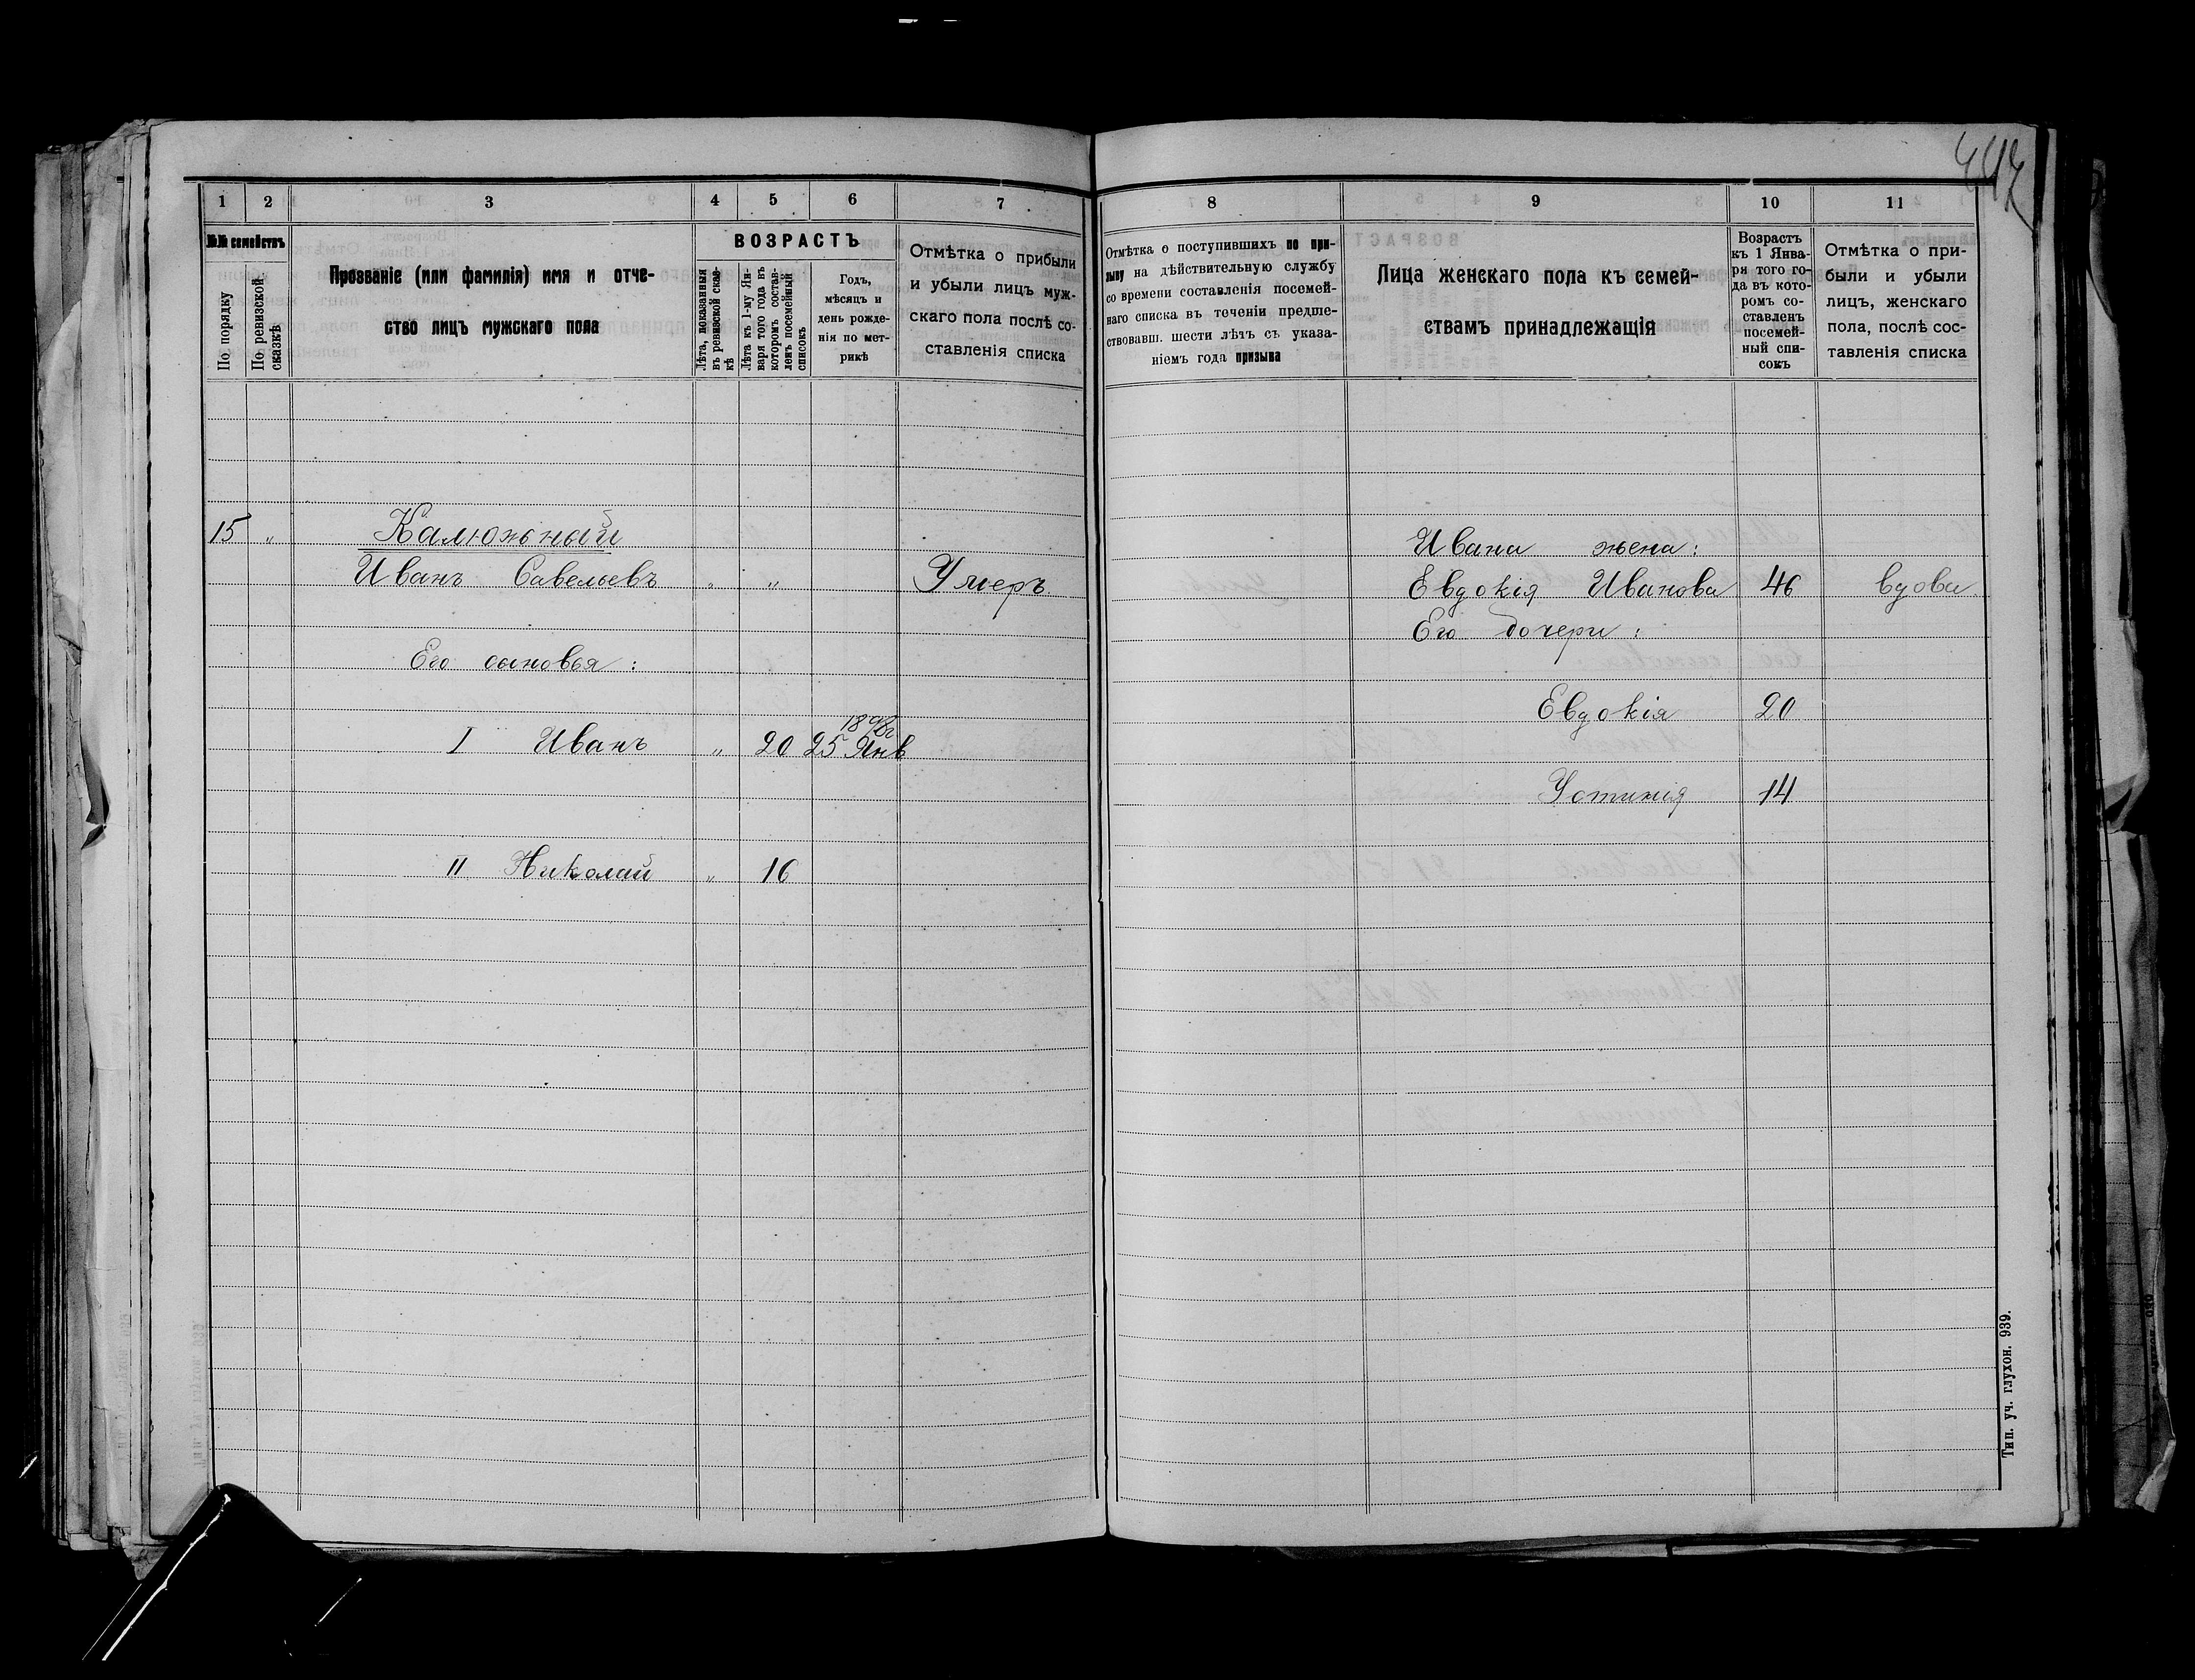 1 2 3 4 5 6 7
№№ семействъ
По порядку
По ревизской сказкѣ
Прозваніе (или фамилія) имя и отче-
ство лицъ мужскаго пола
ВОЗРАСТЪ
Лѣта, показанныя
въ ревизской сказ-
кѣ
Лѣта къ 1-му Ян-
варя того года въ
которомъ состав-
ленъ посемейный
списокъ
Годъ,
мѣсяцъ и
день рожде-
нія по мет-
рикѣ
Отмѣтка о прибыли
и убыли лицъ муж-
скаго пола послѣ со-
ставленія списка
15 " Калюжный
Иванъ Савельевъ " " Умеръ
Его сыновья :
I Иванъ " 20 25 Янв
II Николай " 16
8 9 10 11
Отмѣтка о поступившихъ по при-
зыву на дѣйствительную службу
со времени составленія посемей-
наго списка въ теченіи предше-
ствовавш. шести лѣтъ съ указа-
ніемъ года призыва
Лица женскаго пола къ семей-
ствамъ принадлежащія
Возрастъ
къ 1 Янва-
ря того го-
да въ кото-
ромъ со-
ставленъ
посемей-
ный спи-
сокъ
Отмѣтка о при-
были и убыли
лицъ, женскаго
пола, послѣ сос-
тавленія списка
Ивана жена :
Евдокія Иванова 46 вдова
Его дочери :
Евдокія 20
Устинія 14
Тип. уч. глухон. 939.